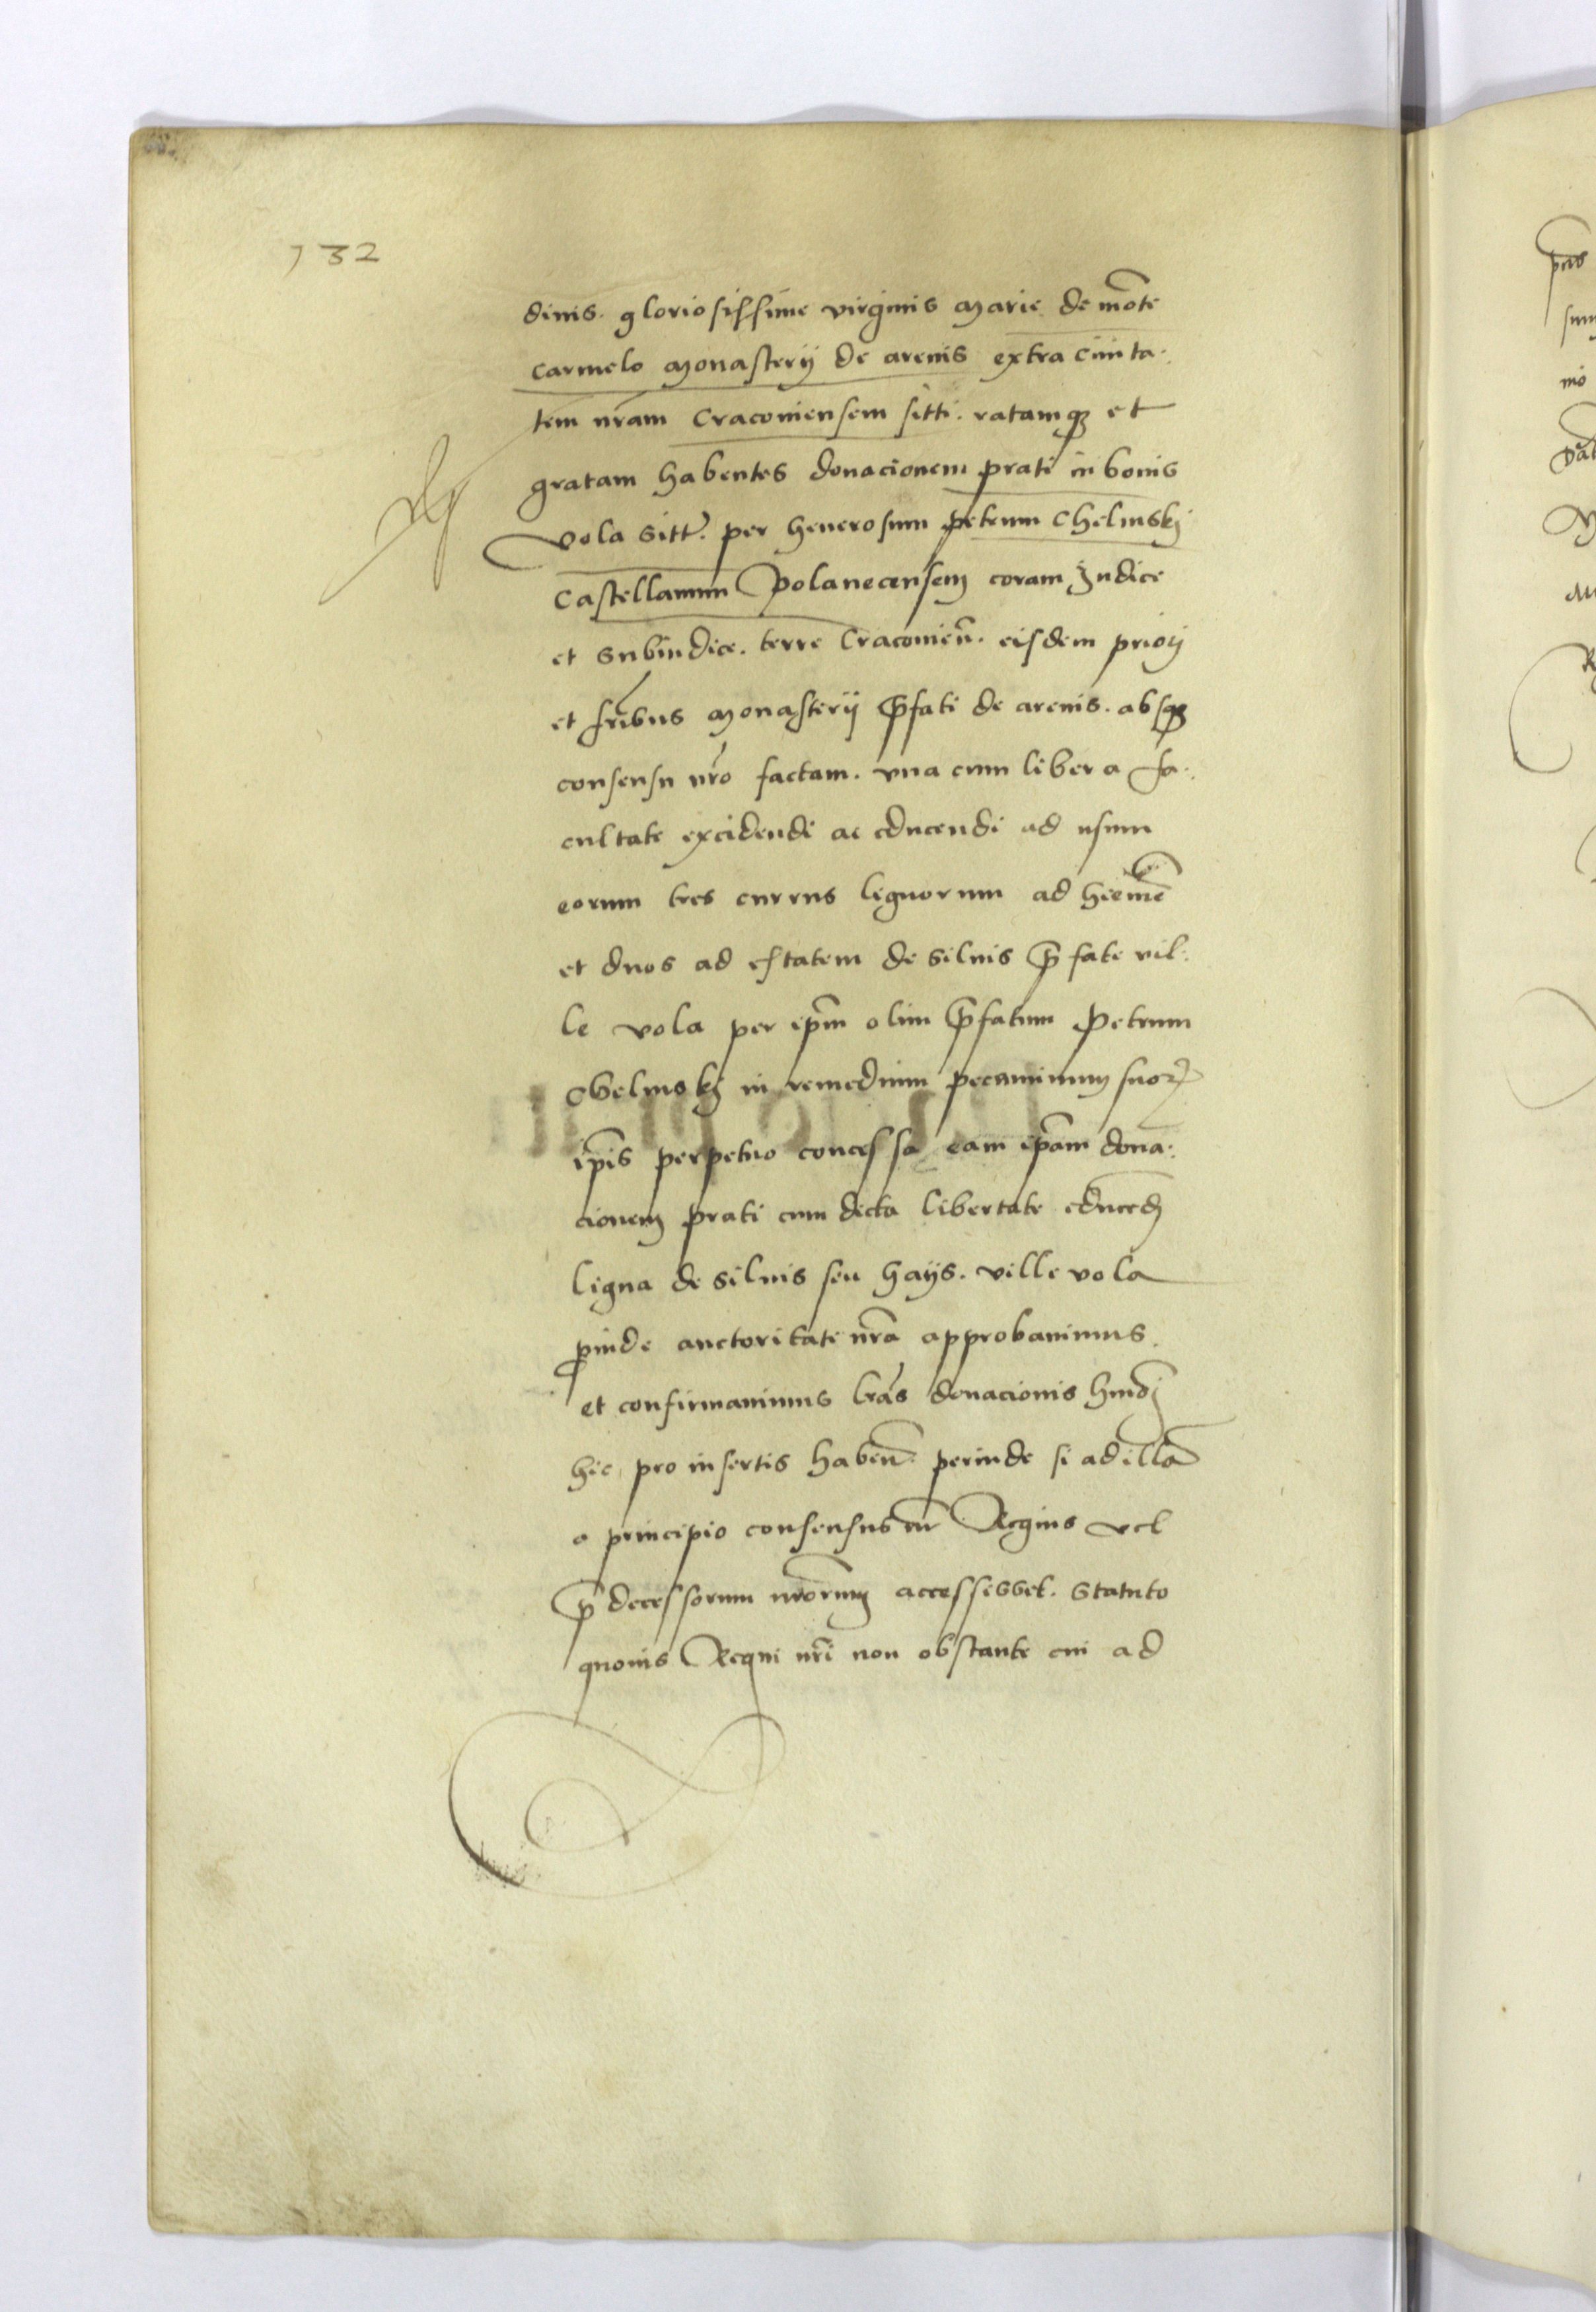 132
dinis. gloriosissime virginis Marie de mōte
Carmelo Monasterij de arenis extra Ciuita.
tem nr̄am Cracouiensem sitti. ratamqȝ et
gratam habentes donacionem prati in bonis
Vola sitt. per Generosum petrum Chelmskj
Castellanum Polanecensem coram Iudice
et Subiudice. terre Cracouien̄. eisdem priorj
et fr̄ibus Monasterij p̄fati de arenis. absqȝ
consensu nr̄o factam. vna cum libera fa.
cultate excidendi ac educendi ad usum
eorum tres currus lignorum ad hiemē
et duos ad estatem de siluis p̄fate vil.
le vola per ip̄m olim p̄fatum Petrum
Chelmskj in remedium pecaminum suoꝝ
ip̄is perpetuo concessa eam ip̄am dona.
cionem prati cum dicta libertate educēdj
ligna de siluis seu hayis. ville vola
ꝓinde auctoritate nr̄a approbauimus.
et confirmauimus lr̄as donacionis hmōj
hic pro insertis haben̄. perinde si ad illā
a principio consensus nr̄ Regius vel
p̄decessorum nr̄orum accessisset. Statuto
quouis Regni nr̄i non obstante cui ad
pn̄s